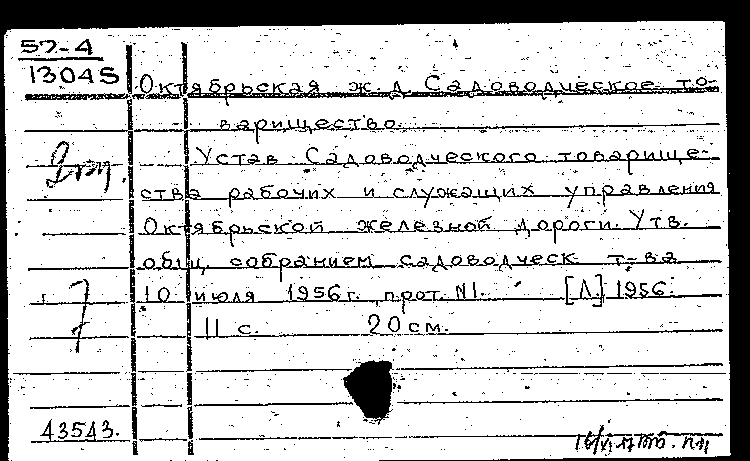 57-4
13045
Октябрьская ж. д. Садоводческое то-
варищество.
Устав Садоводческого товарище-
ства рабочих и служащих управления
Октябрьской железной дороги. Утв.
общ. собранием садоводческ. т-ва
10 июля 1956 г. прот. N1. [Л.] 1956.
11 с. 20 см.
43543.